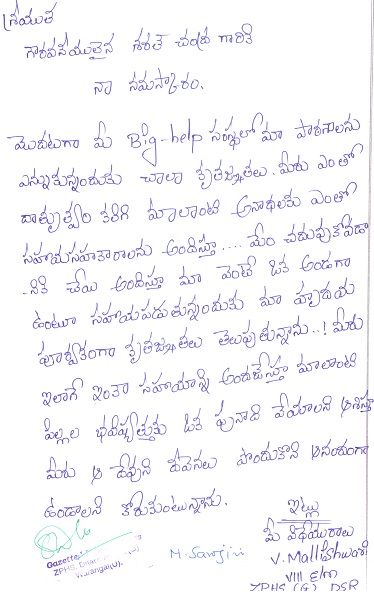 శ్రీయుత
గౌరవనీయులైన శరత్ చంద్ర గారికి
నా నమస్కారం.
మొదటగా మీ Big-help సంస్థలో మా పాఠశాలను
ఎన్నుకున్నందుకు చాలా కృతజ్ఞతలు. మీరు ఎంతో
దాతృత్వం కలిగి మాలాంటి అనాథలకు ఎంతో
సహాయసహకారాలను అందిస్తూ .... మేం చదువుకోవడా
-నికి చేయి అందిస్తూ మా వెంటే ఒక అండగా
ఉంటూ సహాయపడుతున్నందుకు మా హృదయ
పూర్వకంగా కృతజ్ఞతలు తెలుపుతున్నాను..! మీరు
ఇలాగే ఇంకా సహాయాన్ని అందజేస్తూ మాలాంటి
పిల్లల భవిష్యత్తుకు ఒక పునాది వేయాలని ఆశిస్తూ
మీరు ఆ దేవుని దీవెనలు పొందుకొని ఆనందంగా
ఉండాలని కోరుకుంటున్నాను.
ఇట్లు
మీ విధేయురాలు
V. Malleshwari
VIII E/m
ZPHS (G) DSR
M. Sarojini
Gazette
ZPHS,
Warangal(U).